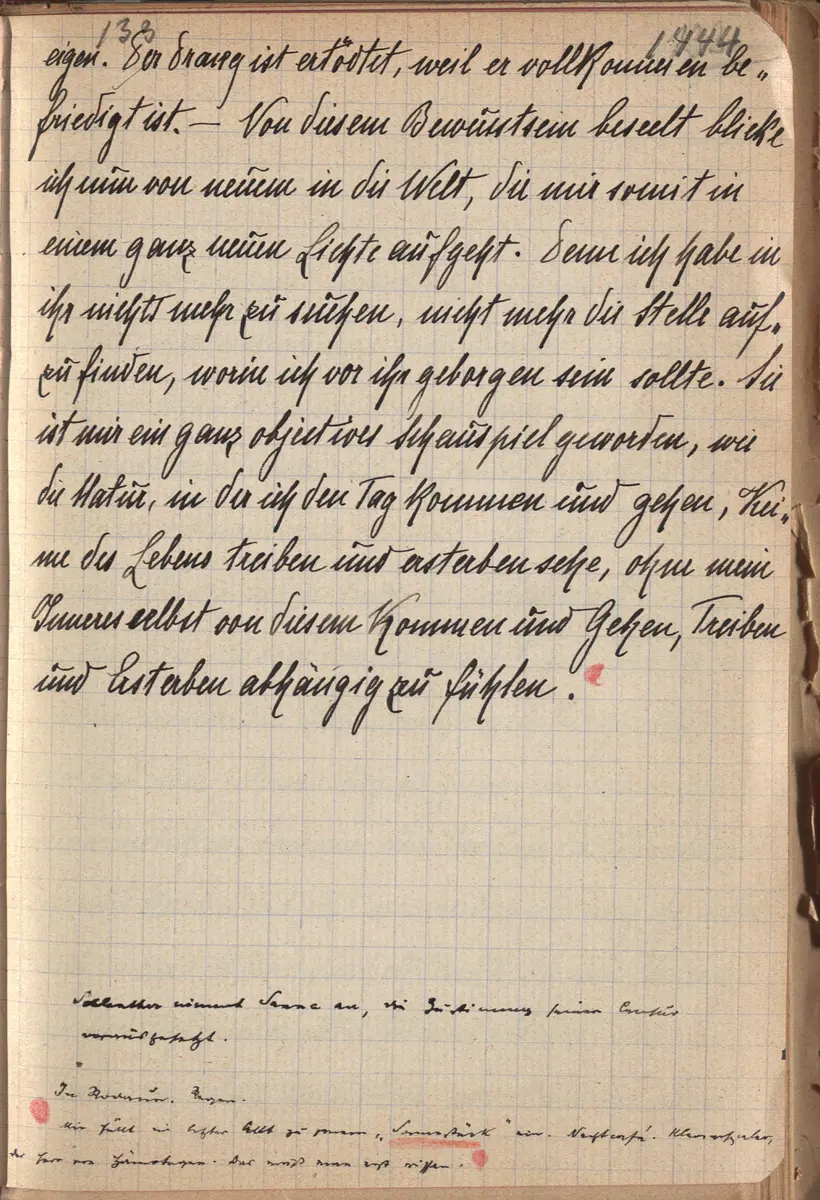 133 1444
eigen. Der Drang ist ertödtet, weil er vollkommen be„
friedigt ist. — Von diesem Bewusstsein beseelt blicke
ich nun von neuem in die Welt, die mir somit in
einem ganz neuen Lichte aufgeht. Denn ich habe in
ihr nichts mehr zu suchen, nicht mehr die Stelle auf„
zufinden, worin ich vor ihr geborgen sein sollte. Sie
ist mir ein ganz objectives Schauspiel geworden, wie
die Natur, in der ich den Tag kommen und gehen, Kei„
me des Lebens treiben und ersterben sehe, ohne mein
Inneres selbst von diesem Kommen und Gehen, Treiben
und Ersterben abhängig zu fühlen.
nimmt Sanna an, die Zustimmung seiner Censur
vorausgesetzt.
In Rodaun. Regen.
Mir fällt ein letzter Akt zu einem „Sonnenstück" ein. Nachtcafé. Klavierspieler,
der Herr von . Das muß man erst wissen.